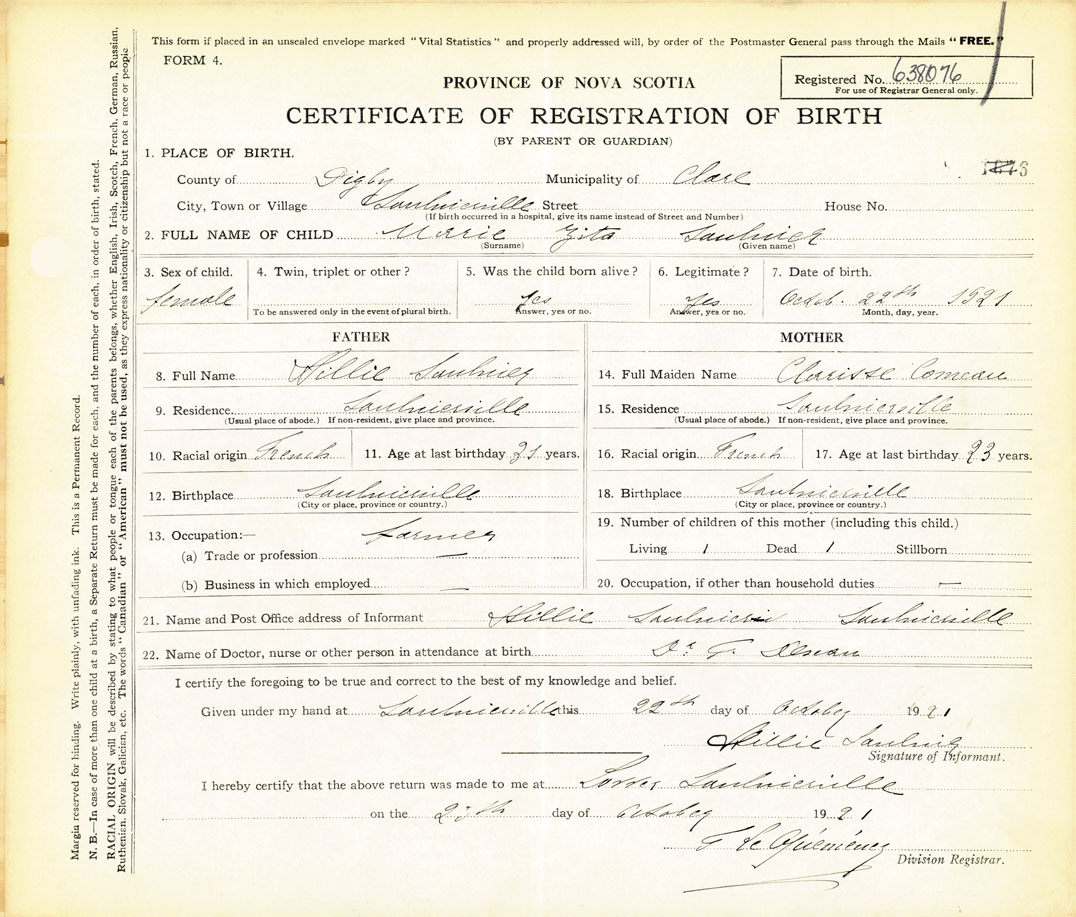 This form if placed in an unsealed envelope marked "Vital Statistics" and properly addressed will, by order of the Postmaster General pass through the Mails "FREE."
FORM 4.
Registered No. 638076
For use of Registrar General only.
PROVINCE OF NOVA SCOTIA
CERTIFICATE OF REGISTRATION OF BIRTH
(BY PARENT OR GUARDIAN)
1. PLACE OF BIRTH.
County of Digby Municipality of Clare
City, Town or Village Saulnierville Street House No.
(If birth occurred in a hospital, give its name instead of Street and Number)
2. FULL NAME OF CHILD Marie Zita Saulnier
(Surname) (Given name)
3. Sex of child. 4. Twin, triplet or other? 5. Was the child born alive? 6. Legitimate? 7. Date of birth.
female Yes Yes Octob. 22th 1921
To be answered only in the event of plural birth. Answer, yes or no. Answer, yes or no. Month, day, year.
FATHER MOTHER
8. Full Name Willie Saulnier 14. Full Maiden Name Clarisse Comeau
9. Residence Saulnierville 15. Residence Saulnierville
(Usual place of abode.) If non-resident, give place and province. (Usual place of abode.) If non-resident, give place and province.
10. Racial origin French 11. Age at last birthday years. 16. Racial origin French 17. Age at last birthday 23 years.
12. Birthplace Saulnierville 18. Birthplace Saulnierville
(City or place, province or country.) (City or place, province or country.)
13. Occupation:— farmer 19. Number of children of this mother (including this child.)
(a) Trade or profession — Living 1 Dead 1 Stillborn
(b) Business in which employed — 20. Occupation, if other than household duties —
21. Name and Post Office address of Informant Willie Saulnier Saulnierville
22. Name of Doctor, nurse or other person in attendance at birth Dr
I certify the foregoing to be true and correct to the best of my knowledge and belief.
Given under my hand at Saulnierville this 22th day of October 1921
Willie Saulnier
Signature of Informant.
I hereby certify that the above return was made to me at Saulnierville
on the day of October 1921
Division Registrar.
Margin reserved for binding. Write plainly, with unfading ink. This is a Permanent Record.
N. B.—In case of more than one child at a birth, a Separate Return must be made for each, and the number of each, in order of birth, stated.
RACIAL ORIGIN will be described by stating to what people or tongue each of the parents belongs, whether English, Irish, Scotch, French, German, Russian,
Ruthenian, Slovak, Galician, etc. The words "Canadian" or "American" must not be used, as they express nationality or citizenship but not a race or people